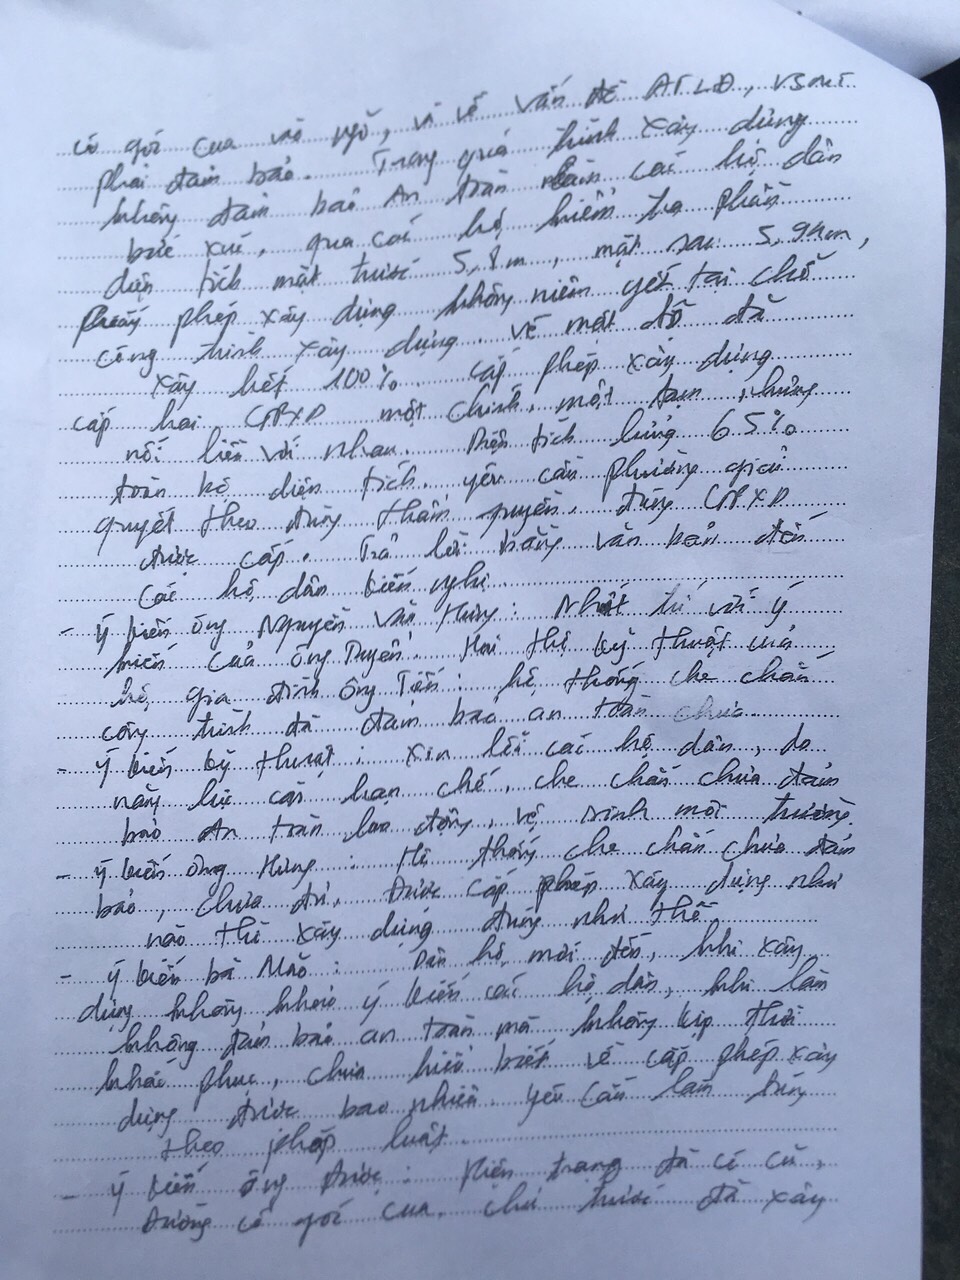 có gói cua vào ngõ, vì về vấn đề ATLĐ, VSMT
phải đảm bảo. Trong quá trình xây dựng
không đảm bảo An toàn các hộ dân
bức xúc, qua các hộ kiểm tra phần
diện tích mặt trước 5,8m, mặt sau 5,94m,
phép xây dựng không niêm yết tại chỗ
công trình xây dựng. Về mật độ đã
xây hết 100%. cấp phép xây dựng
cấp hai GPXD một chính, một tạm nhưng
nối liền với nhau. Diện tích lửng 65%
toàn bộ diện tích. yêu cầu phường giải
quyết theo đúng thẩm quyền, đúng GPXD
được cấp. Trả lời bằng văn bản đến
các hộ dân kiến nghị.
- ý kiến ông Nguyễn Văn Hưng: Nhất trí với ý
kiến của ông Duyên. Hỏi thị kỹ thuật của
hộ gia đình ông Tiến: hệ thống che chắn
công trình đã đảm bảo an toàn chưa.
- ý kiến kỹ thuật: xin lỗi các hộ dân, do
năng lực còn hạn chế, che chắn chưa đảm
bảo An toàn lao động, vệ sinh môi trường.
- ý kiến ông Hưng: Hệ thống che chắn chưa đảm
bảo, chưa đủ, Được cấp phép xây dựng như
nào thì xây dựng đúng như thế.
- ý kiến bà Mão: Dân hộ mới đến, khi xây
dựng không khảo ý kiến các hộ dân, khi làm
không đảm bảo an toàn mà không kịp thời
khắc phục, chưa hiểu biết về cấp phép xây
dựng được bao nhiêu. yêu cầu làm đúng
theo pháp luật.
- ý kiến ông Được: Hiện trạng đã có cũ,
đường có gói cua. chủ trước đã xây